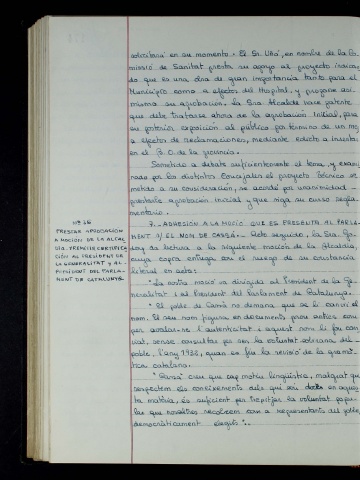 solicitará en su momento. El Sr. Uñó, en nombre de la Co-
misió de Sanitat presta su apoyo al proyecto indican-
do que es una obra de gran importancia tanto para el
Municipio como a efectos del Hospital, y propone asi-
mismo su aprobacion. La Sra Alcalde hace patente
que debe tratarse ahora de la aprobación Inicial, para
su posterior exposición al público por término de un mes
a efectos de reclamaciones, mediante edicto a inserta
en el B.O de la provincia.
Sometido a debate suficientemente el tema, y exami-
nado por los distintos Concejales el proyecto Técnico so-
metido a su consideración, se acordó por unanimidad
prestarle aprobación inicial y que siga su curso regla-
mentario.
Nº 16
PRESTAR APROBACION
A MOCION DE LA ALCAL
DIA. TRAMETRE CERTIFICA-
CIÓ AL PRESIDENT DE
LA GENERALITAT y AL
PRESIDENT DEL PARLA-
MENT DE CATALUNYA
7.- ADHESIÓN A LA MOCIÓ QUE ES PRESENTA AL PARLA-
MENT S/ EL NOM DE CASSÀ.- Acto seguido, la Sra.
da lectura a la siguiente moción de la Alcaldía,
cuya copia entrega así el ruego de su constancia
literal en acta:
"La nostra moció va dirigida al President de la Ge-
neralitat i al President del Parlament de Catalunya.
El poble de Cassà no demana que se li canvii el
nom. El seu nom figura en documents prou antics com
per avalar-ne l'autenticitat i aquest nom li fou can-
viat, sense consultar per res la voluntat sobirana del
poble, l'any 1932, quan es feu la revisió de la gramà-
tica catalana.
Cassà creu que cap motiu lingüístic, malgrat que
respectem els coneixements dels qui són doctes en aques-
ta matèria, és suficient per trepitjar la voluntat popu-
lar que nosaltres recollim com a representants del poble,
democràticament elegits".-